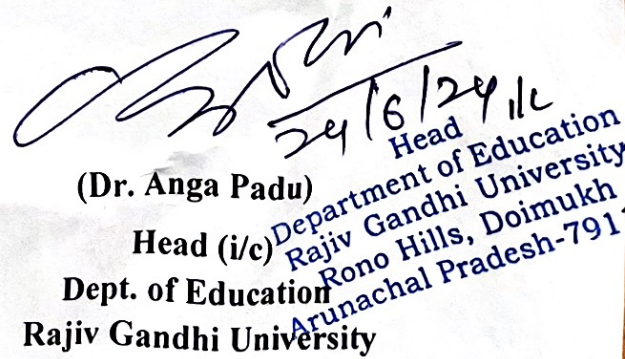 24/6/24 i/c
(Dr. Anga Padu)
Head (i/c)
Dept. of Education
Rajiv Gandhi University
Head
Department of Education
Rajiv Gandhi University
Rono Hills, Doimukh
Arunachal Pradesh-791